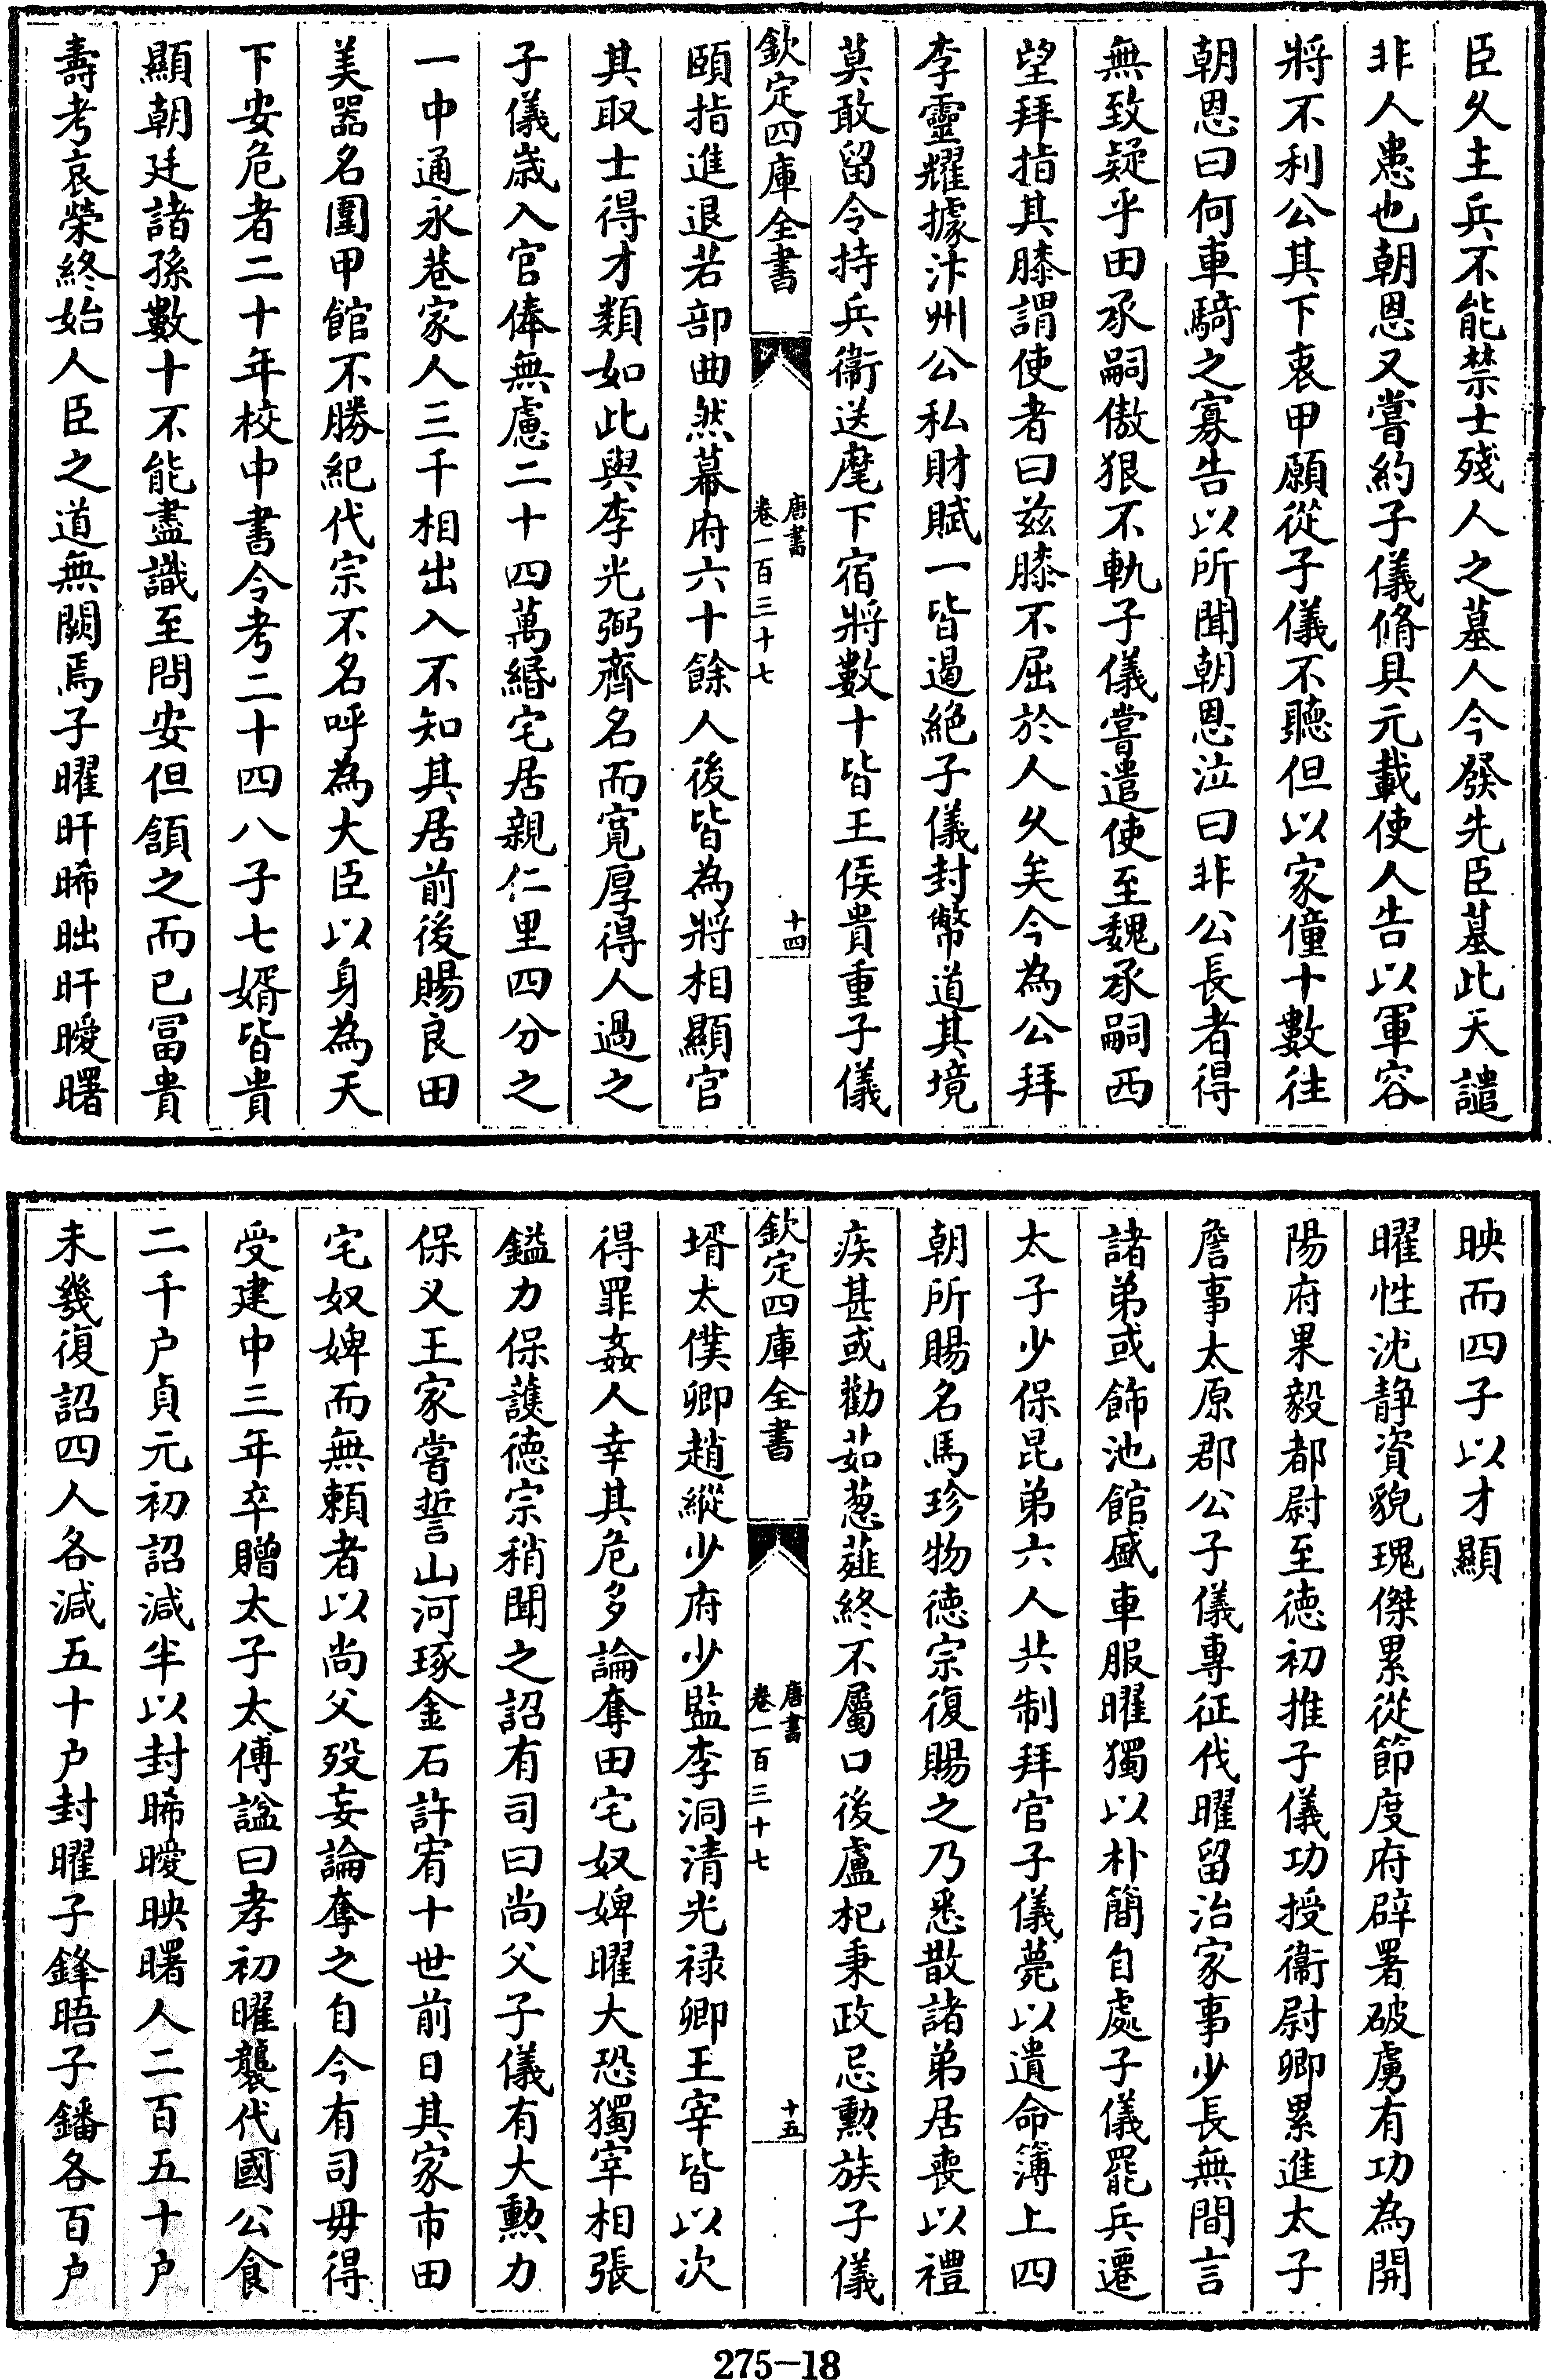 臣久主兵不能禁士殘人之墓人今發先臣墓此天譴
非人患也朝恩又嘗約子儀脩具元載使人告以軍容
將不利公其下衷甲願從子儀不聽但以家僮十數往
朝恩曰何車騎之寡告以所聞朝恩泣曰非公長者得
無致疑乎田承嗣傲狠不軌子儀嘗遣使至魏承嗣西
望拜指其膝謂使者曰茲膝不屈於人久矣今為公拜
李靈耀據汴州公私財賦一皆遏絕子儀封幣道其境
莫敢留令持兵衞送麾下宿將數十皆王侯貴重子儀
欽定四庫全書
唐書
卷一百三十七
十四
頤指進退若部曲然幕府六十餘人後皆為將相顯官
其取士得才類如此與李光弼齊名而寬厚得人過之
子儀嵗入官俸無慮二十四萬緡宅居親仁里四分之
一中通永巷家人三千相出入不知其居前後賜良田
美器名園甲館不勝紀代宗不名呼為大臣以身為天
下安危者二十年校中書令考二十四八子七婿皆貴
顯朝廷諸孫數十不能盡識至問安但頷之而已富貴
壽考哀榮終始人臣之道無闕焉子曜旰晞昢旰曖曙
映而四子以才顯
曜性沈静資貌瑰傑累從節度府辟署破虜有功為開
陽府果毅都尉至徳初推子儀功授衞尉卿累進太子
詹事太原郡公子儀專征伐曜留治家事少長無間言
諸弟或飾池館盛車服曜獨以朴簡自處子儀罷兵遷
太子少保昆弟六人共制拜官子儀薨以遺命簿上四
朝所賜名馬珍物徳宗復賜之乃悉散諸弟居喪以禮
疾甚或勸茹葱薤終不屬口後盧杞秉政忌勳族子儀
欽定四庫全書
唐書
卷一百三十七
十五
壻太僕卿趙縱少府少監李洞清光禄卿王宰皆以次
得罪姦人幸其危多論奪田宅奴婢曜大恐獨宰相張
鎰力保護徳宗稍聞之詔有司曰尚父子儀有大勲力
保乂王家嘗誓山河琢金石許宥十世前日其家市田
宅奴婢而無賴者以尚父歿妄論奪之自今有司毋得
受建中三年卒贈太子太傅諡曰孝初曜襲代國公食
二千户貞元初詔減半以封晞曖映曙人二百五十户
未幾復詔四人各減五十户封曜子鋒晤子鐇各百户
275-18